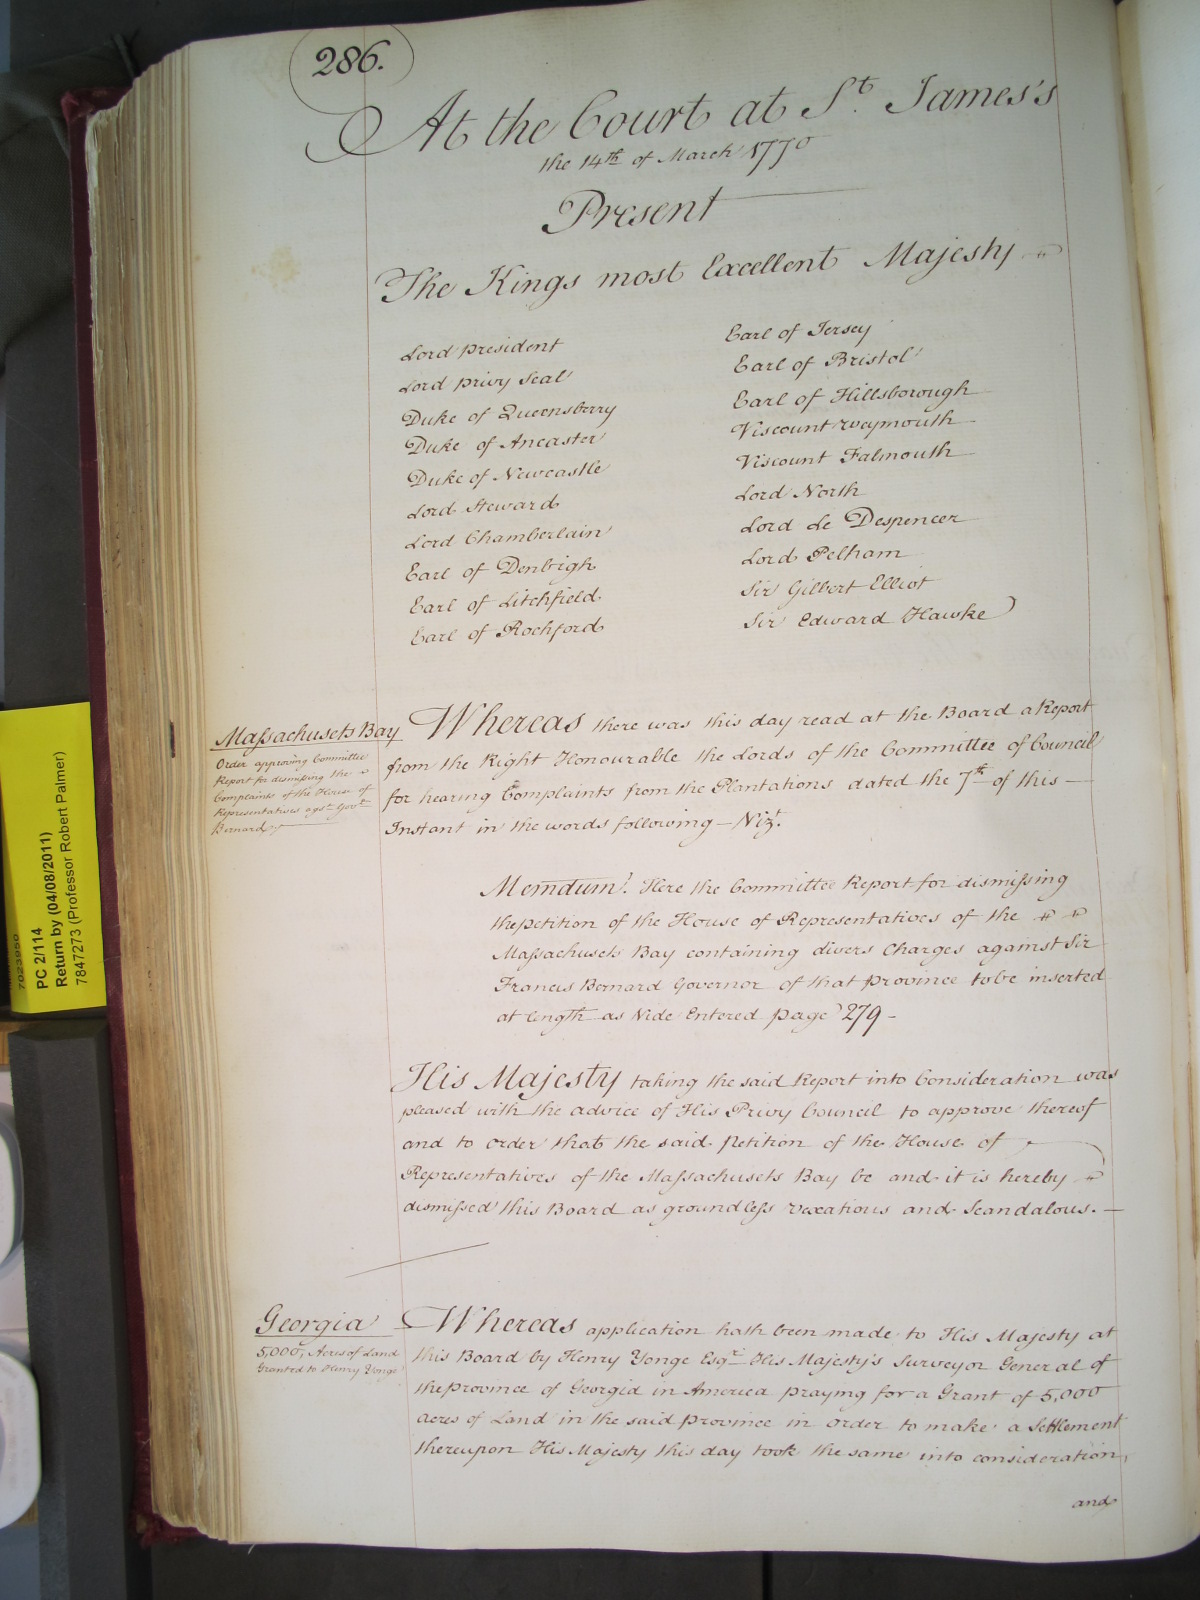 286.
At the Court at St. James's
the 14th of March 1770
Present
The Kings most Excellent Majesty
Lord President
Lord Privy Seal
Duke of Queensberry
Duke of Ancaster
Duke of Newcastle
Lord Steward
Lord Chamberlain
Earl of Denbigh
Earl of Litchfield
Earl of Rochford
Earl of Jersey
Earl of Bristol
Earl of Hillsborough
Viscount Weymouth
Viscount Falmouth
Lord North
Lord Le Despencer
Lord Pelham
Sir Gilbert Elliot
Sir Edward Hawke
Massachusets Bay
Order approving Committee
Report for dismissing the
Complaints of the House of
Representatives agst. Govr.
Bernard
Whereas there was this day read at the Board a Report
from the Right Honourable the Lords of the Committee of Council
for hearing Complaints from the Plantations dated the 7th of this
Instant in the words following - Vizt.
Memdum. Here the Committee Report for dismissing
the petition of the House of Representatives of the
Massachusets Bay containing divers Charges against Sir
Francis Bernard Governor of that Province to be inserted
at length as Vide Entered page 279 -
His Majesty taking the said Report into Consideration was
pleased with the advice of His Privy Council to approve thereof
and to order that the said Petition of the House of
Representatives of the Massachusets Bay be and it is hereby
dismissed this Board as groundless vexatious and Scandalous. -
Georgia
5,000, Acres of Land
Granted to Henry Yonge
Whereas application hath been made to His Majesty at
this Board by Henry Yonge Esqr. His Majesty's Surveyor General of
the Province of Georgia in America praying for a Grant of 5,000
Acres of Land in the said Province in order to make a Settlement
thereupon His Majesty this day took the same into consideration,
and
7023950
PC 2/114
Return by (04/08/2011)
7847273 (Professor Robert Palmer)